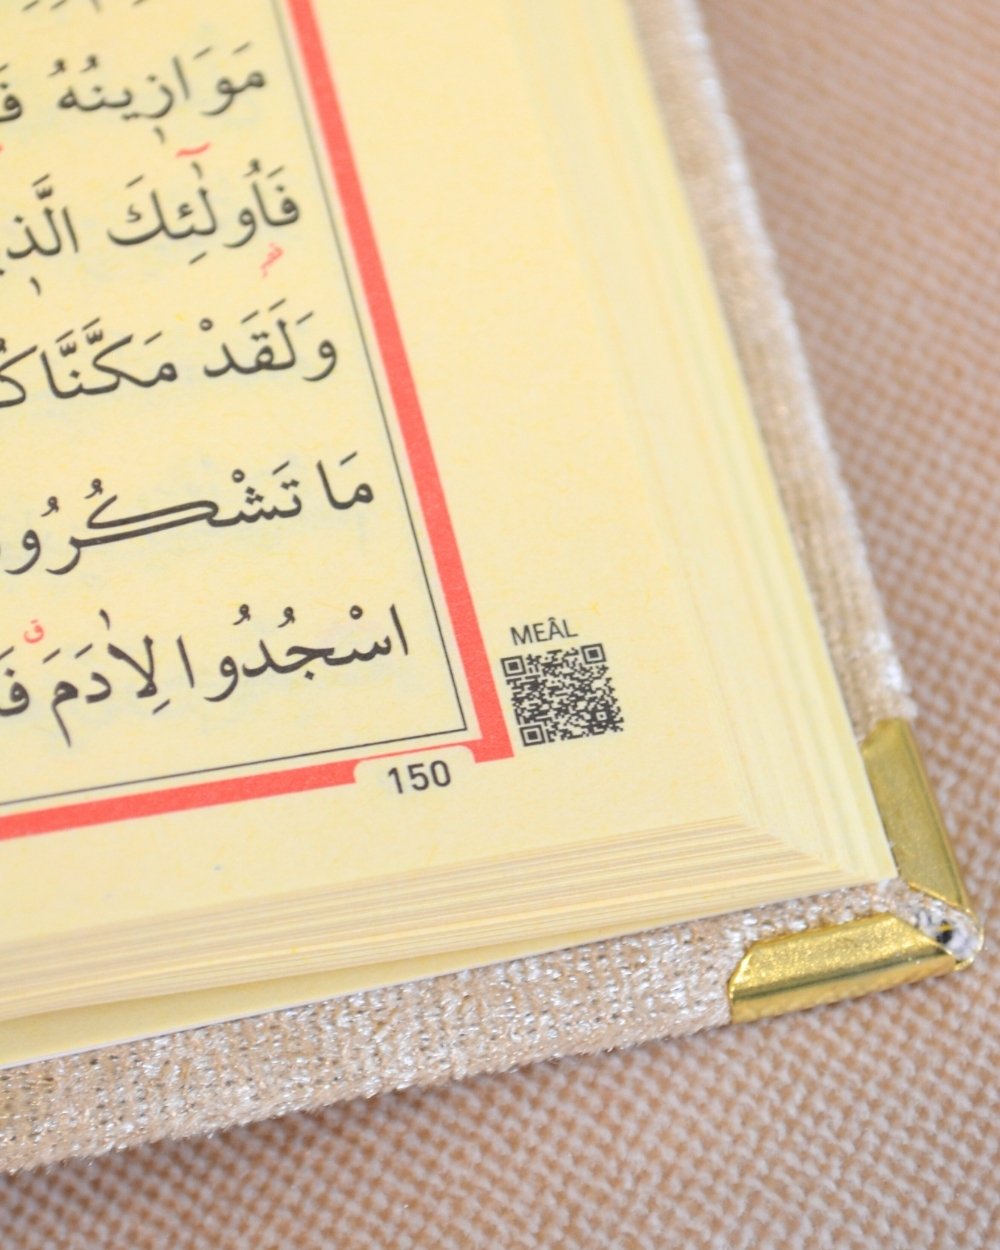 مَوَازٖينُهُ
فَاُو۬لٰٓئِكَ الَّذٖ
وَلَقَدْ مَكَّنَّاكُ
مَا تَشْكُرُو
اسْجُدُوا لِاٰدَمَ فَ
MEÂL
150